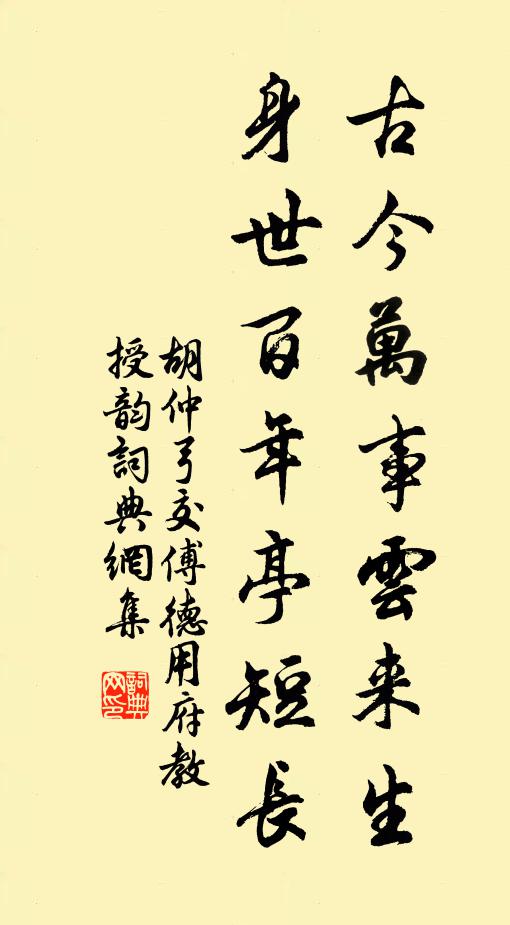 古今萬事雲来生
身世百年亭短長
胡仲弓交傅德用府教
授韵詞典網集
詞典
网印